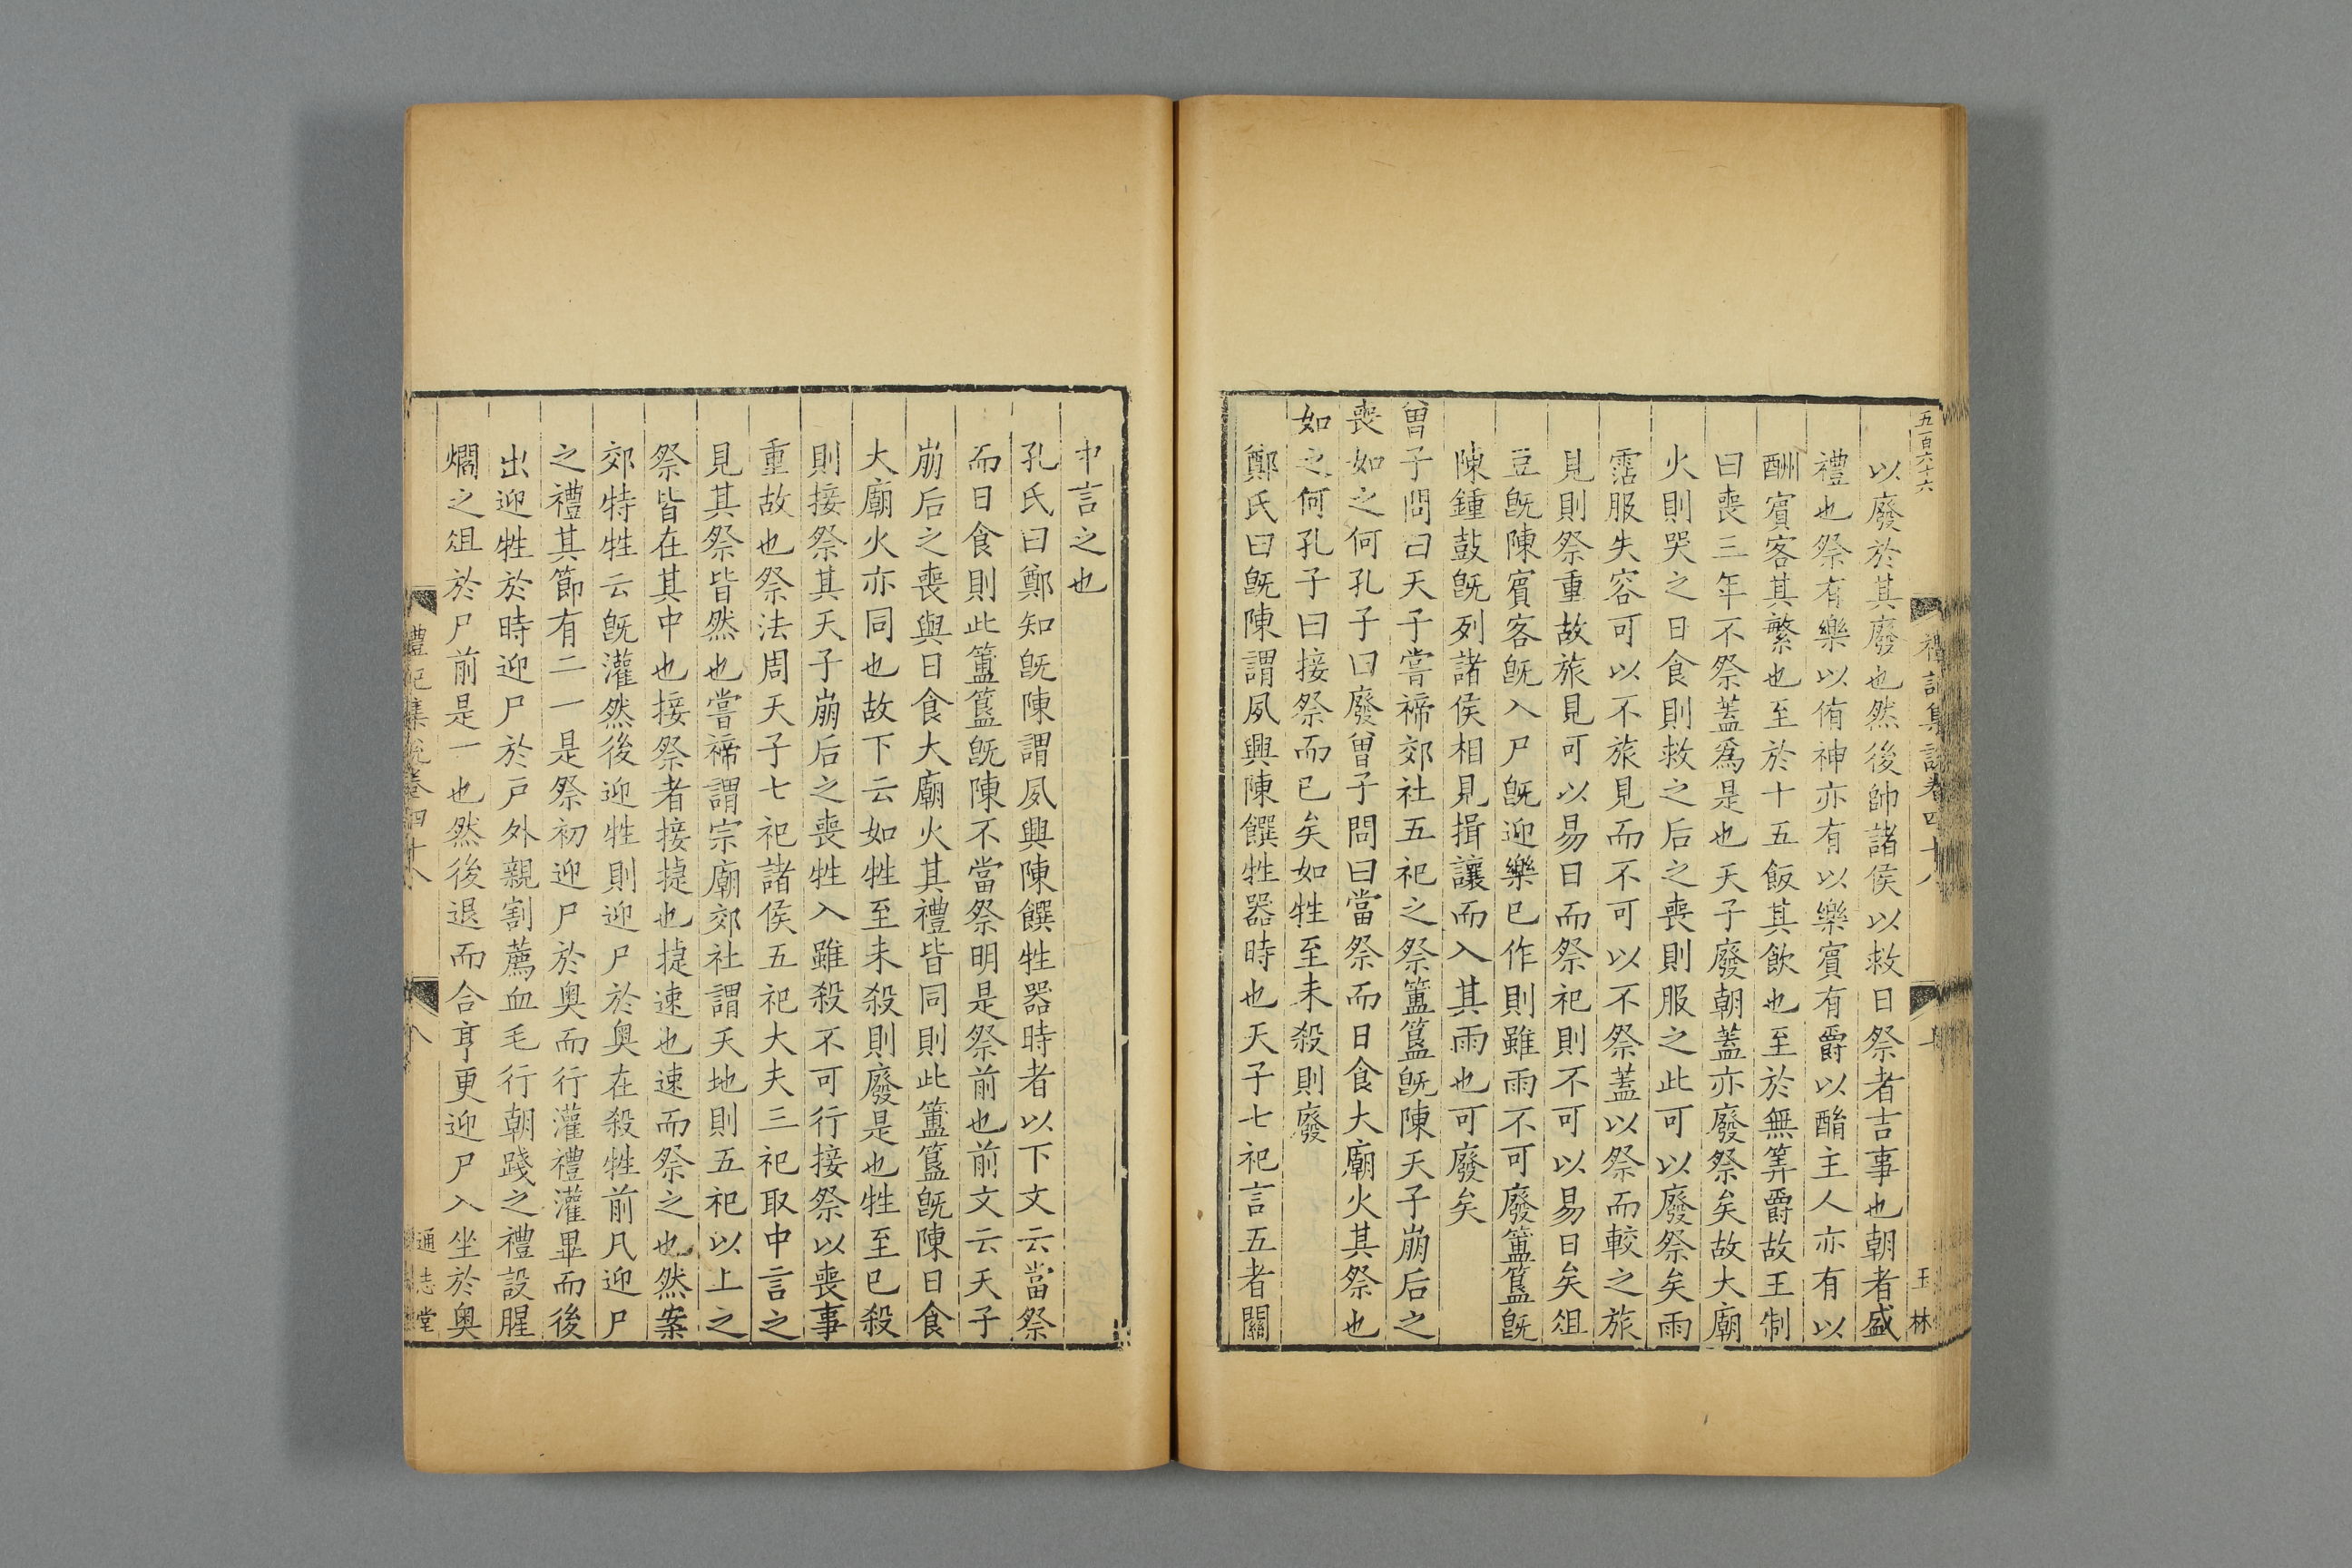 五百六十六
禮記集說卷四十八
玉林
以廢於其廢也然後帥諸侯以救日祭者吉事也朝者盛
禮也祭有樂以侑神亦有以樂賓有爵以酳主人亦有以
酬賓客其繁也至於十五飯其飲也至於無筭爵故王制
曰喪三年不祭蓋爲是也天子廢朝蓋亦廢祭矣故大廟
火則哭之日食則救之后之喪則服之此可以廢祭矣雨
霑服失容可以不旅見而不可以不祭蓋以祭而較之旅
見則祭重故旅見可以易日而祭祀則不可以易日矣俎
豆旣陳賓客旣入尸旣迎樂已作則雖雨不可廢簠簋旣
陳鍾鼓旣列諸侯相見揖讓而入其雨也可廢矣
曾子問曰天子嘗禘郊社五祀之祭簠簋旣陳天子崩后之
喪如之何孔子曰廢曾子問曰當祭而日食大廟火其祭也
如之何孔子曰接祭而已矣如牲至未殺則廢
鄭氏曰旣陳謂夙興陳饌牲器時也天子七祀言五者關
中言之也
孔氏曰鄭知旣陳謂夙興陳饌牲器時者以下文云當祭
而日食則此簠簋旣陳不當祭明是祭前也前文云天子
崩后之喪與日食大廟火其禮皆同則此簠簋旣陳日食
大廟火亦同也故下云如牲至未殺則廢是也牲至已殺
則接祭其天子崩后之喪牲入雖殺不可行接祭以喪事
重故也祭法周天子七祀諸侯五祀大夫三祀取中言之
見其祭皆然也嘗禘謂宗廟郊社謂天地則五祀以上之
祭皆在其中也接祭者接捷也捷速也速而祭之也然案
郊特牲云旣灌然後迎牲則迎尸於奧在殺牲前凡迎尸
之禮其節有二一是祭初迎尸於奧而行灌禮灌畢而後
出迎牲於時迎尸於戸外親割薦血毛行朝踐之禮設腥
爓之俎於尸前是一也然後退而合亨更迎尸入坐於奧
禮記集說卷四十八
八
通志堂